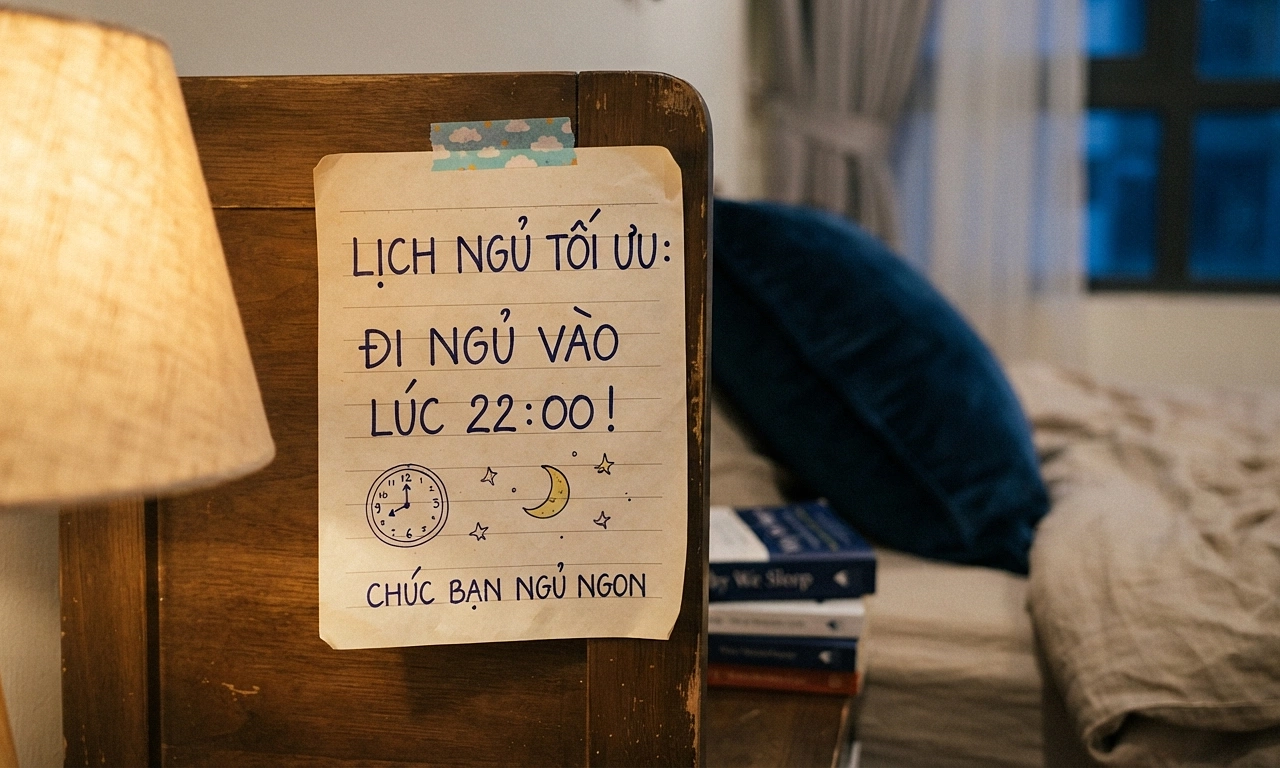 LỊCH NGỦ TỐI ƯU:
ĐI NGỦ VÀO
LÚC 22:00!
CHÚC BẠN NGỦ NGON
We Sleep